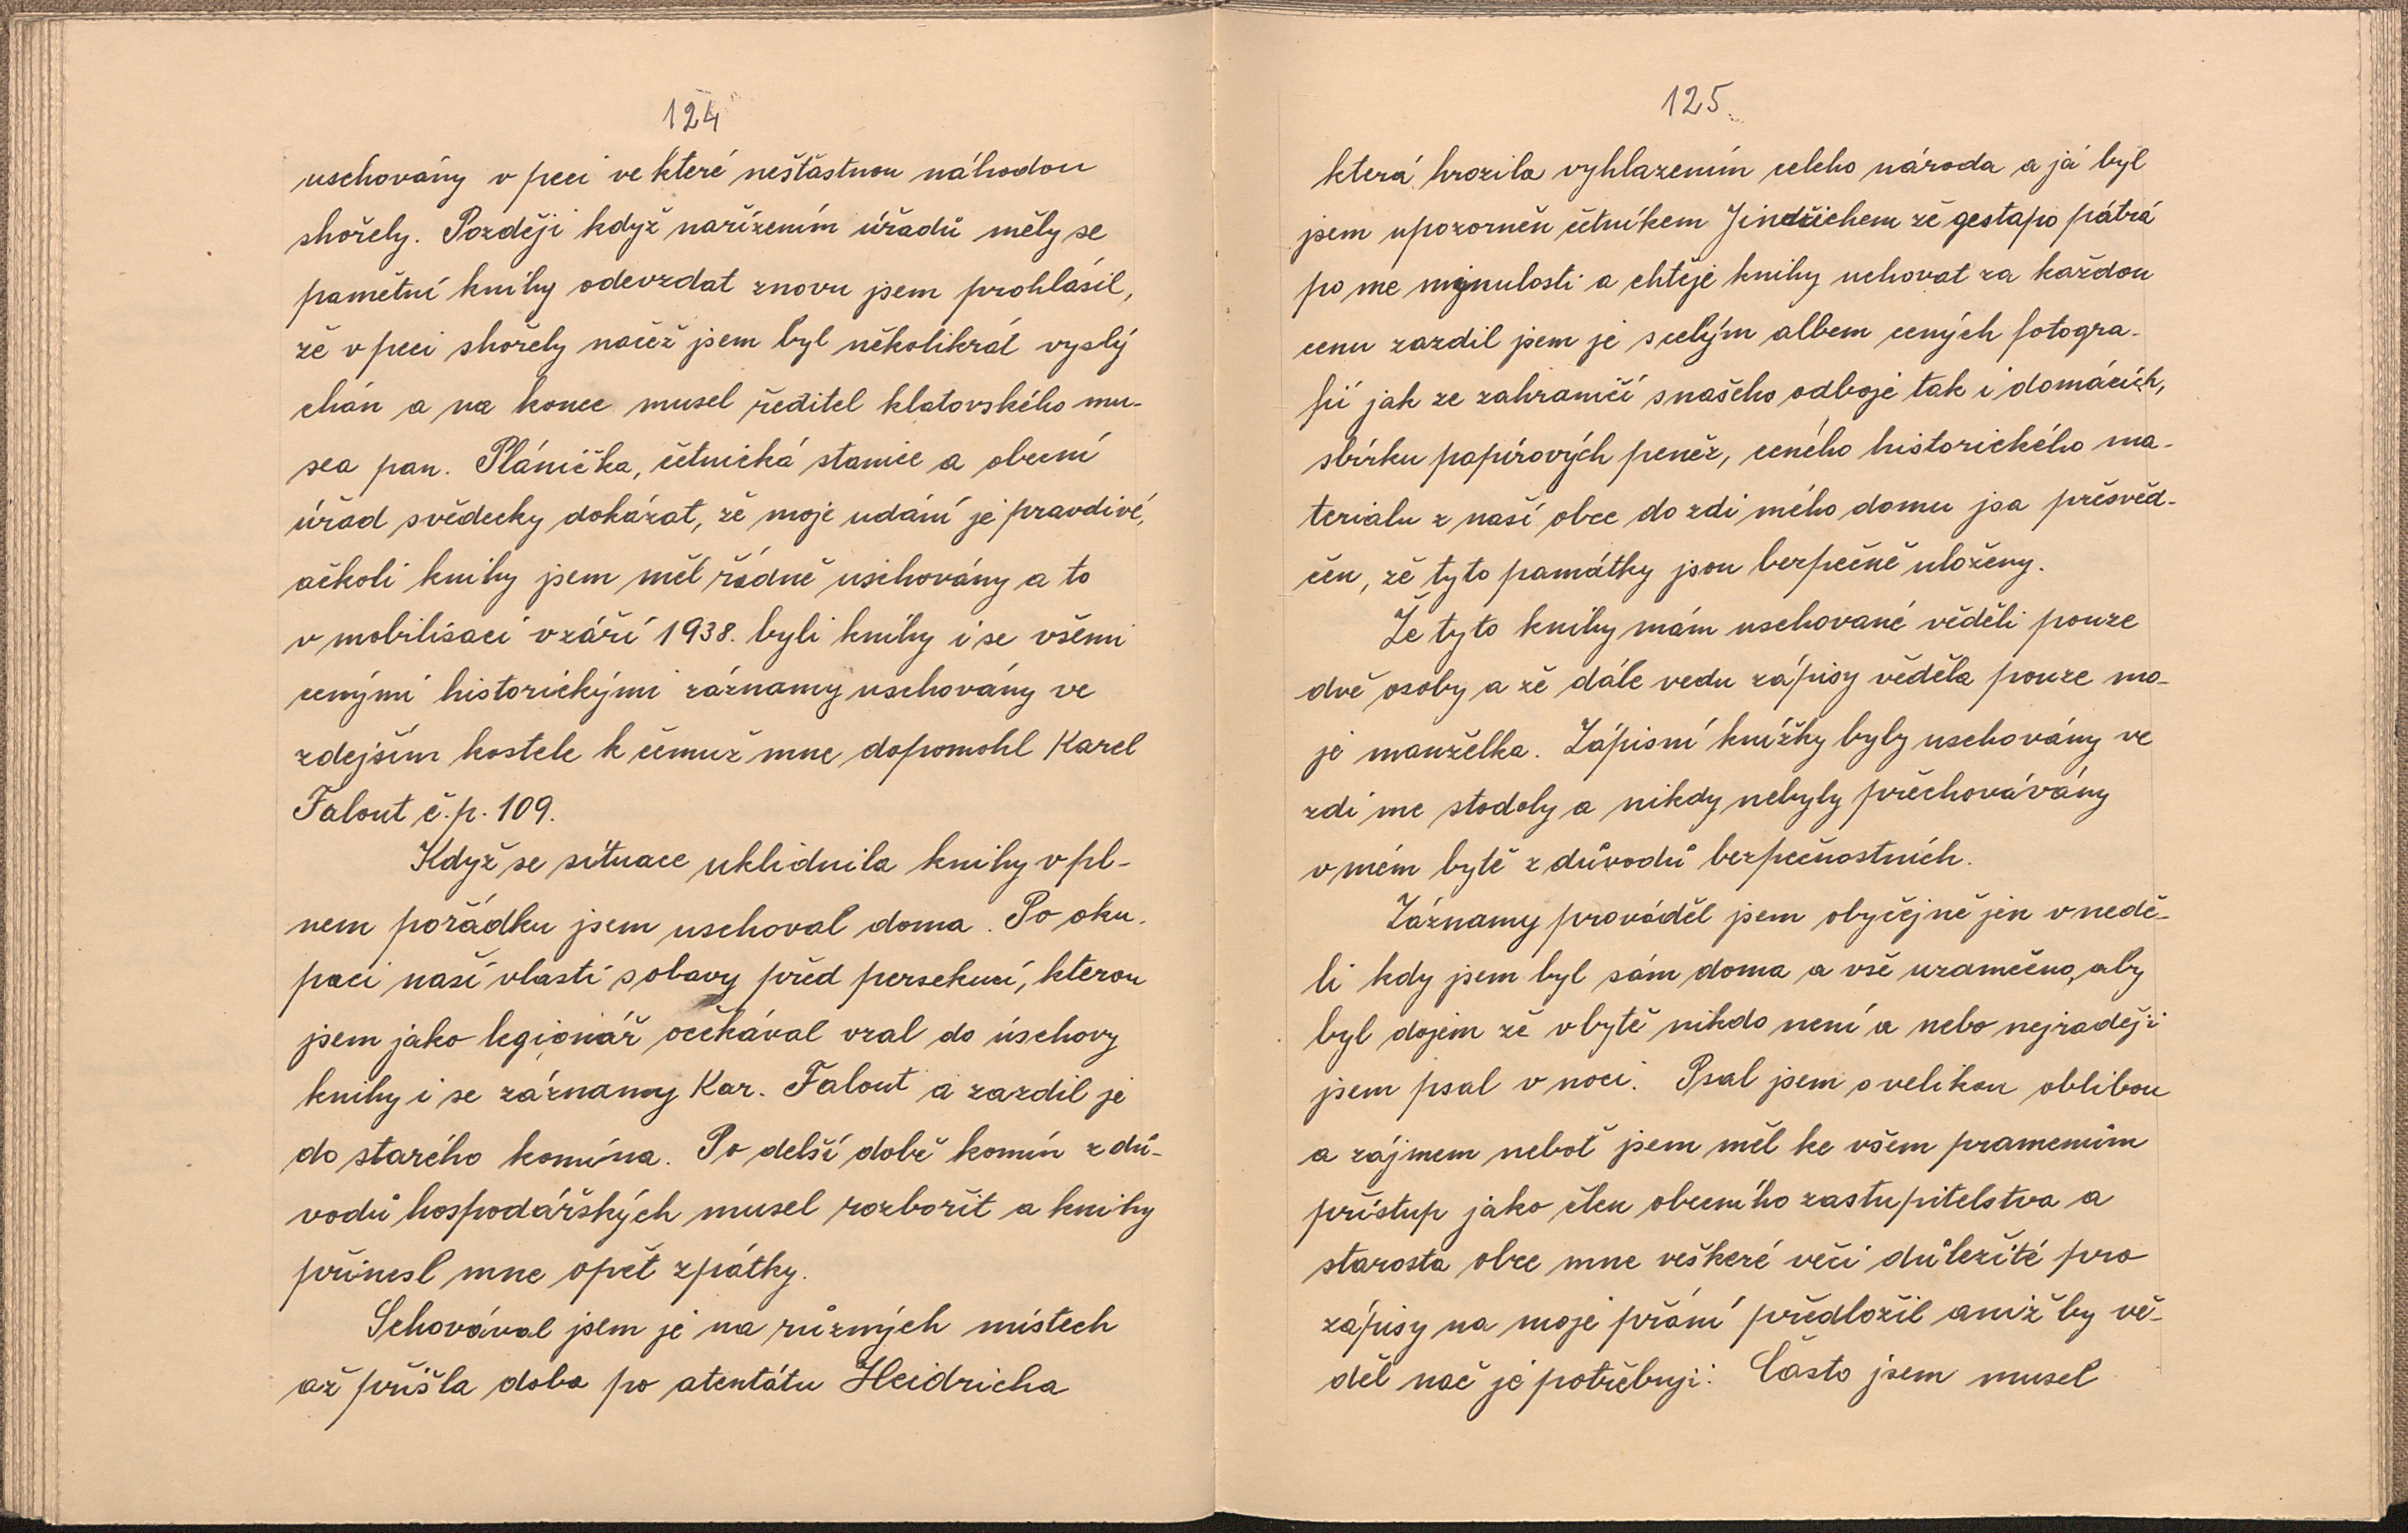 124
uschovány v peci ve které nešťastnou náhodou
shořely. Později když nařízením úřadů měly se
pamětní knihy odevzdat znovu jsem prohlásil,
že v peci shořely načež jsem byl několikrát vyslý
chán a na konec musel ředitel klatovského mu-
sea pan. Plánička, četnická stanice a obecní
úřad svědecky dokázat, že moje udání je pravdivé,
ačkoli knihy jsem měl řádně uschovány a to
v mobilisaci v září 1938. byli knihy i se všemi
cenými historickými záznamy uschovány ve
zdejším kostele k čemuž mne dopomohl Karel
Falout č.p. 109.
Když se situace uklidnila knihy v pl-
nem pořádku jsem uschoval doma. Po oku-
paci naší vlasti s obavy před persekucí, kterou
jsem jako legionář očekával vzal do úschovy
knihy i se záznamy Kar. Falout a zazdil je
do starého komína. Po delší době komín z dů-
vodů hospodářských musel rozbořit a knihy
přinesl mne opět zpátky.
Schovával jsem je na různých místech
až přišla doba po atentátu Heidricha
125.
která hrozila vyhlazením celeho národa a já byl
jsem upozorněn četníkem Jindřichem že gestapo pátrá
po me minulosti a chtěje knihy uchovat za každou
cenu zazdil jsem je s celým albem cených fotogra-
fií jak ze zahraničí s našeho odboje tak i domácích,
sbírku papírových peněz, ceného historického ma-
terialu z naší obce do zdi mého domu jsa přesvěd-
čen, že tyto památky jsou bezpečně uloženy.
Že tyto knihy mám uschované věděli pouze
dvě osoby a že dále vedu zápisy věděla pouze mo-
je manželka. Zápisní knížky byly uschovány ve
zdi me stodoly a nikdy nebyly přechovávány
v mém bytě z důvodů bezpečnostních.
Záznamy prováděl jsem obyčejně jen v nedě-
li kdy jsem byl sám doma a vše uzamčeno, aby
byl dojem že v bytě nikdo není a nebo nejraději
jsem psal v noci. Psal jsem s velikou oblibou
a zájmem neboť jsem měl ke všem pramenům
přístup jako člen obecního zastupitelstva a
starosta obce mne veškeré věci důležité pro
zápisy na moje přání předložil aniž by vě-
děl nač je potřebuji. Často jsem musel